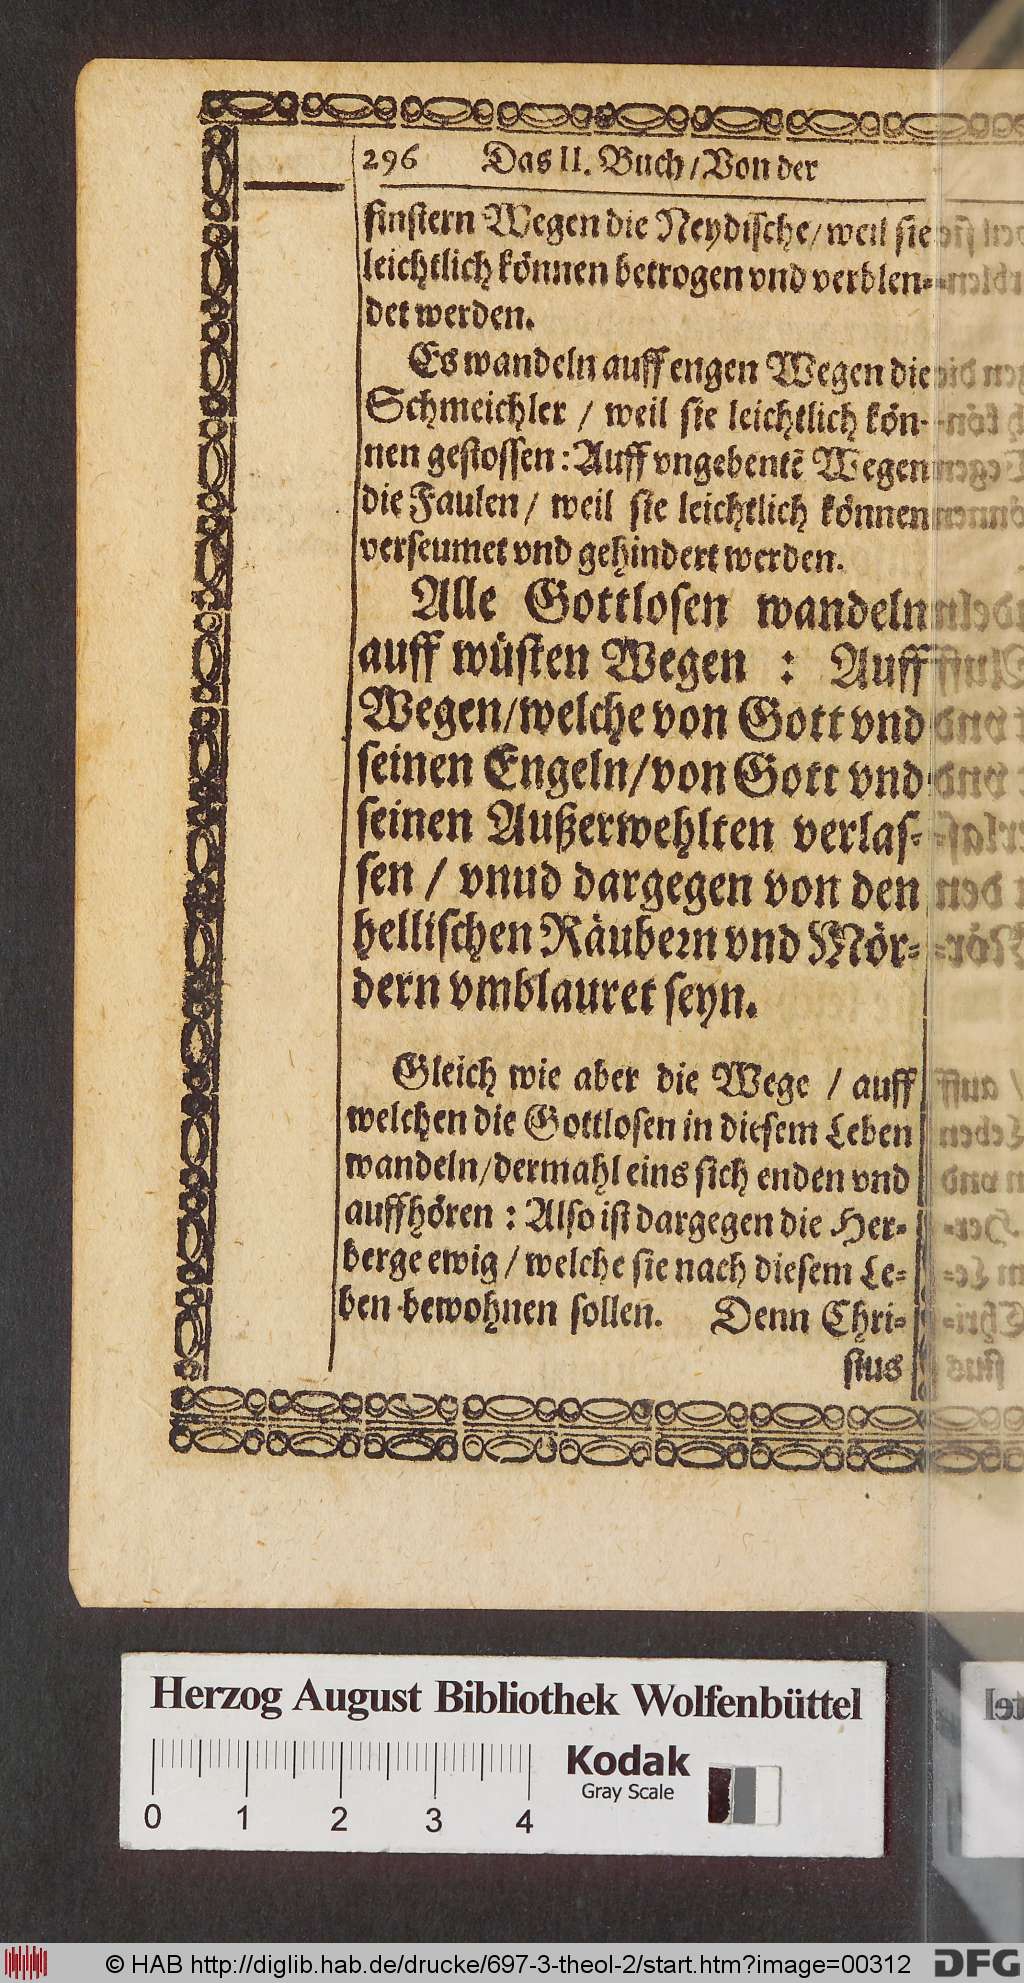 296 Das II. Buch/Von der
finstern Wegen die Neydische/weil sie
leichtlich können betrogen vnd verblen-
det werden.
Es wandeln auff engen Wegen die
Schmeichler / weil sie leichtlich kön-
nen gestossen: Auff vngebentẽ Wegen
die Faulen / weil sie leichtlich können
verseumet vnd gehindert werden.
Alle Gottlosen wandeln
auff wüsten Wegen : Auff
Wegen/welche von Gott vnd
seinen Engeln/von Gott vnd
seinen Außerwehlten verlas-
sen / vnud dargegen von den
hellischen Räubern vnd Mör-
dern vmblauret seyn.
Gleich wie aber die Wege / auff
welchen die Gottlosen in diesem Leben
wandeln/dermahl eins sich enden vnd
auffhören : Also ist dargegen die Her-
berge ewig / welche sie nach diesem Le-
ben bewohnen sollen. Denn Chri-
stus
Herzog August Bibliothek Wolfenbüttel
Kodak
Gray Scale
0 1 2 3 4
© HAB http://diglib.hab.de/drucke/697-3-theol-2/start.htm?image=00312
DFG